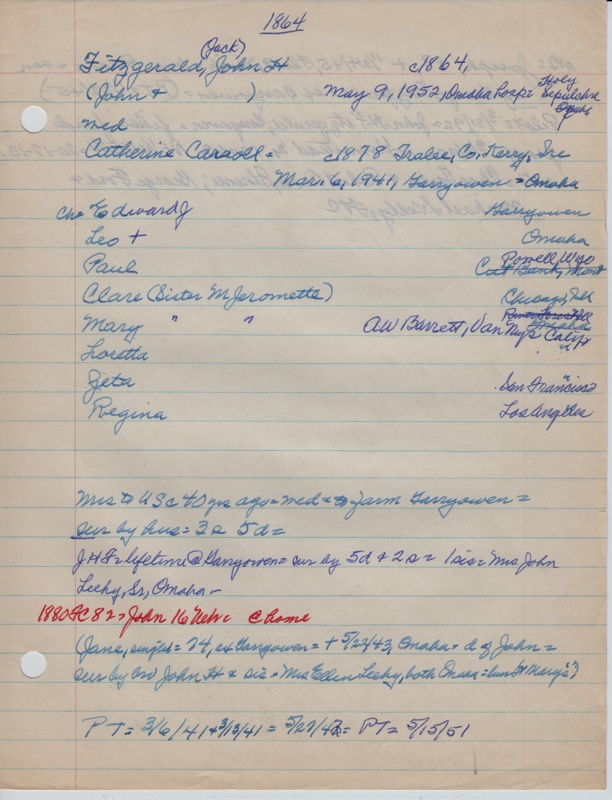 1864
(Jack)
Fitzgerald, John H c1864,
(John + ) May 9, 1952, Omaha Holy Sepulchre Omaha
med
Catherine Carroll - c1878 Tralee, Co, Kerry, Ire
Mar. 6, 1941, Garryowen = Omaha
Ch = Edward J Garryowen
Leo + Omaha
Paul Powell, Wyo Cut Bank, Mont
Clare (Sister M Jeromette) Chicago, Ill
Mary " " AW Barrett, Van Nuys Calif Omaha
Loretta "
Zeta San Francisco
Regina Los Angeles
Mrs to US c 40 yrs ago = med & to farm Garryowen =
sur by hus = 3s 5d =
JHF = lifetime @ Garryowen = sur by 5d + 2s = 1 sis = Mrs John
Leehy, Sr, Omaha -
1880 FC 82 = John 16 Neb = @ home
(Jane, = 74, ex Garryowen = + 5/22/43, Omaha = d of John =
sur by bro John H & sis = Mrs Ellen Leehy, both Omaha = bur St Mary's)
PT = 3/6/41 + 3/13/41 = 5/27/43 = PT = 5/15/51